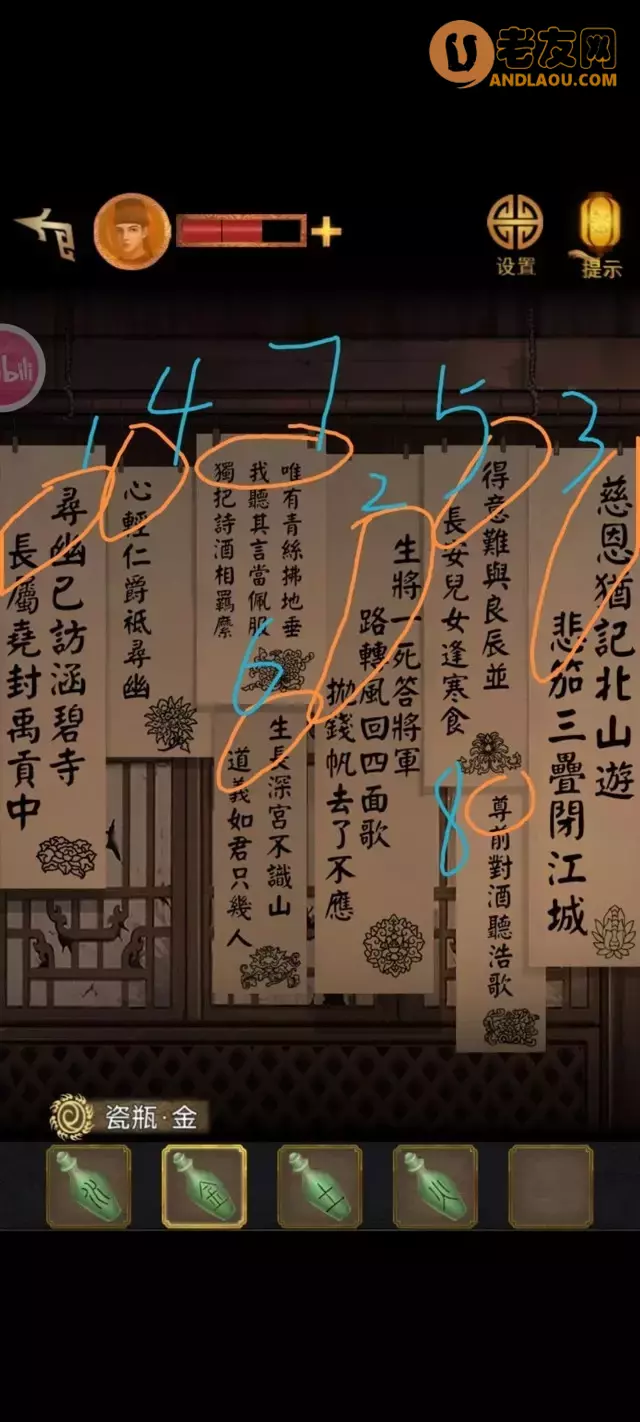 老友网
ANDLAOU.COM
设置
提示
bili
3
慈恩猶記北山遊
悲笳三疊閉江城
5
得意難與良辰並
長安兒女逢寒食
8
尊前對酒聽浩歌
2
生將一死答將軍
路轉風回四面歌
拋錢帆去了不應
7
唯有青絲拂地垂
我聽其言當佩服
獨把詩酒相羈縻
6
生長深宮不識山
道義如君只幾人
4
心輕仁爵祗尋幽
1
尋幽已訪涵碧寺
長屬堯封禹貢中
瓷瓶·金
水
金
土
火